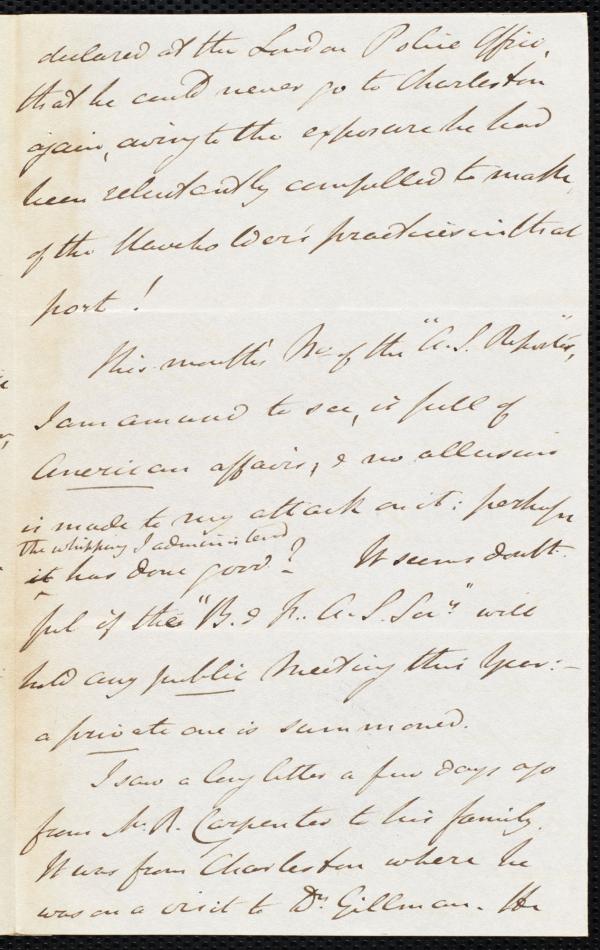 declared at the London Police Office,
that he could never go to Charleston
again, owing to the exposure he had
been reluctantly compelled to make,
of the slaveholder's practices in that
port!
This month's No. of the "A.S. Reporter",
I am amused to see, is full of
American affairs, & no allusion
is made to my attack on it: perhaps
the whipping I administered
it has done good? It seems doubt-
ful if the "B. & F. A. S. Socy" will
hold any public Meeting this Year:—
a private one is summoned.
I saw a long letter a few days ago
from Mr. R. Carpenter to his family.
It was from Charleston where he
was on a visit to Dr. Gillman. He